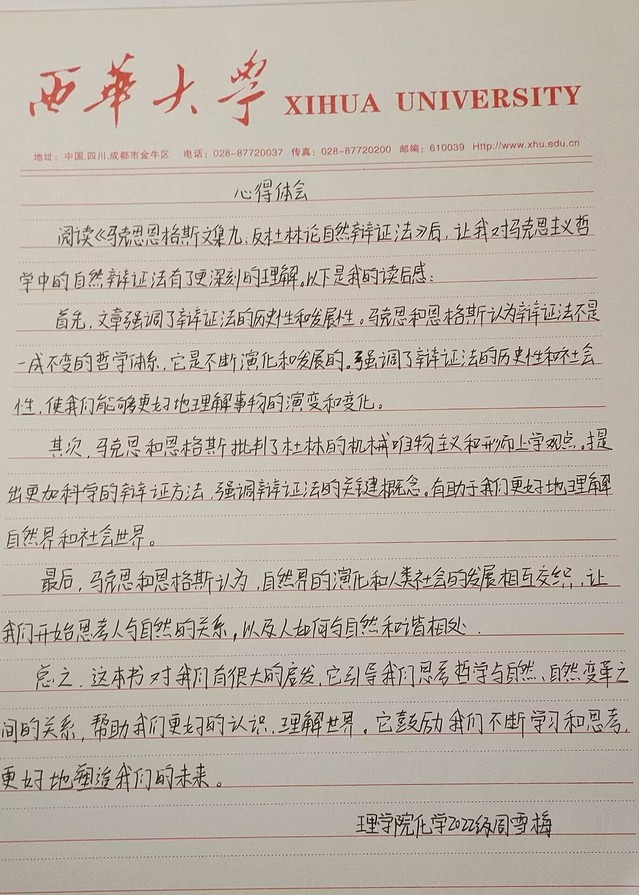 西華大學 XIHUA UNIVERSITY
地址：中国.四川.成都市金牛区 电话：028-87720037 传真：028-87720200 邮编：610039 Http://www.xhu.edu.cn
心得体会
阅读《马克思恩格斯文集九：反杜林论自然辩证法》后，让我对马克思主义哲
学中的自然辩证法有了更深刻的理解。以下是我的读后感：
首先，文章强调了辩证法的历史性和发展性。马克思和恩格斯认为辩证法不是
一成不变的哲学体系，它是不断演化和发展的。强调了辩证法的历史性和社会
性，使我们能够更好地理解事物的演变和变化。
其次，马克思和恩格斯批判了杜林的机械唯物主义和形而上学观点。提
出更加科学的辩证方法，强调辩证法的关键概念。有助于我们更好地理解
自然界和社会世界。
最后，马克思和恩格斯认为，自然界的演化和人类社会的发展相互交织，让
我们开始思考人与自然的关系，以及人如何与自然和谐相处．
总之，这本书对我们有很大的启发，它引导我们思考哲学与自然、自然变革之
间的关系，帮助我们更好的认识、理解世界。它鼓励我们不断学习和思考，
更好地塑造我们的未来。
理学院化学2022级周雪梅